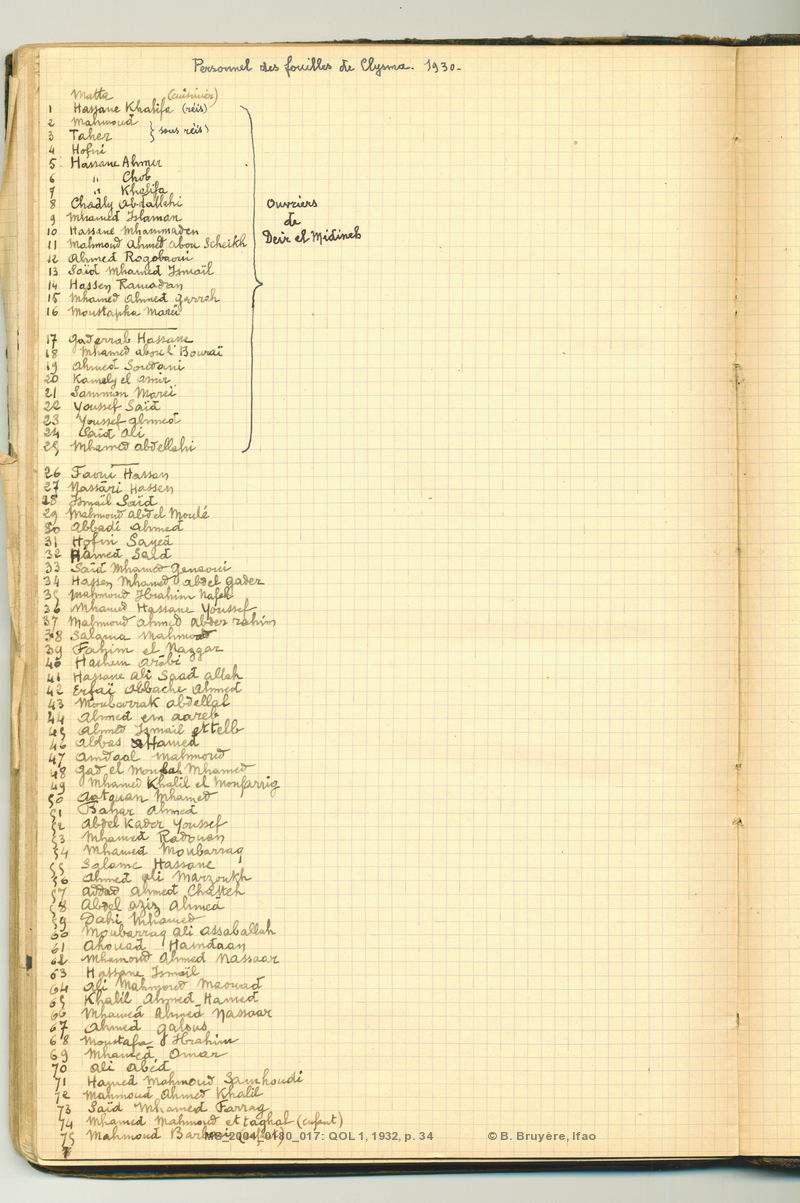 Personnel des fouilles de Clysma. 1930.
Matta (cuisinier)
1 Hassane Khalifa (réis)
2 Mahmoud
3 Taher } sous réis
4 Hofni
5 Hassane Ahmer
6 " Chob
7 " Khalifa
8 Chadly Abdallehi
9 Mhamed Islaman
10 Hassane Mhammaden
11 Mahmoud Ahmed Abou Scheikh
12 Ahmed Rogobaoui
13 Saïd Mhamed Ismaïl
14 Hassen Ramadan
15 Mhamed Ahmed Gerrah
16 Moustapha Marei
Ouvriers
de
Deir el Médineh
17 Gaderrab Hassane
18 Mhamed abou l'Bouraï
19 Ahmed Soudani
20 Kamely el amir
21 Samman Marei
22 Youssef Saïd
23 Youssef Ahmed
24 Saïd Ali
25 Mhamed abdellahi
26 Faoui Hassan
27 Nassari Hassen
28 Ismaïl Saïd
29 Mahmoud abdel Moulé
30 Abbadi Ahmed
31 Hofni Sayed
32 Hamed Saïd
33 Saïd Mhamed Genaoui
34 Hassen Mhamed abdel Gader
35 Mahmoud Ibrahim Nafeh
36 Mhamed Hassane Youssef
37 Mahmoud Ahmed Abder rahim
38 Salama Mahmoud
39 Fahim el Naggar
40 Hachem Arabi
41 Hassane Ali Saad allah
42 Erfaï Abbache Ahmed
43 Moubarrak abdellah
44 Ahmed em aareb
45 Ahmed Ismaïl ettelb
46 Abbas Hamed
47 Amdgal Mahmoud
48 Gad el Mhamed
49 Mhamed Khalil el Monfarrig
50 Gatouan Mhamed
51 Bahar Ahmed
52 Abdel Kader Youssef
53 Mhamed Radouan
54 Mhamed Moubarraq
55 Salame Hassane
56 Ahmed Ali Marzoukh
57 Ahmed Chasteh
58 Abdel aziz Ahmed
59 Dahi Mhamed
60 Moubarraq Ali Assaballah
61 Aouad Hamdaan
62 Mhamoud Ahmed Nassaar
63 Hassane Ismaïl
64 Ali Mahmoud Maouad
65 Khalil Ahmed Hamed
66 Mhamed Ahmed Nassaar
67 Ahmed galous
68 Moustafa Ibrahim
69 Mhamed Omar
70 Ali Abed
71 Hamed Mahmoud Samhoudi
72 Mahmoud Ahmed Khalil
73 Saïd Mhamed Farrag
74 Mhamed Mahmoud et taghal (enfant)
75 Mahmoud
MS_2004_0180_017: QOL 1, 1932, p. 34 © B. Bruyère, Ifao